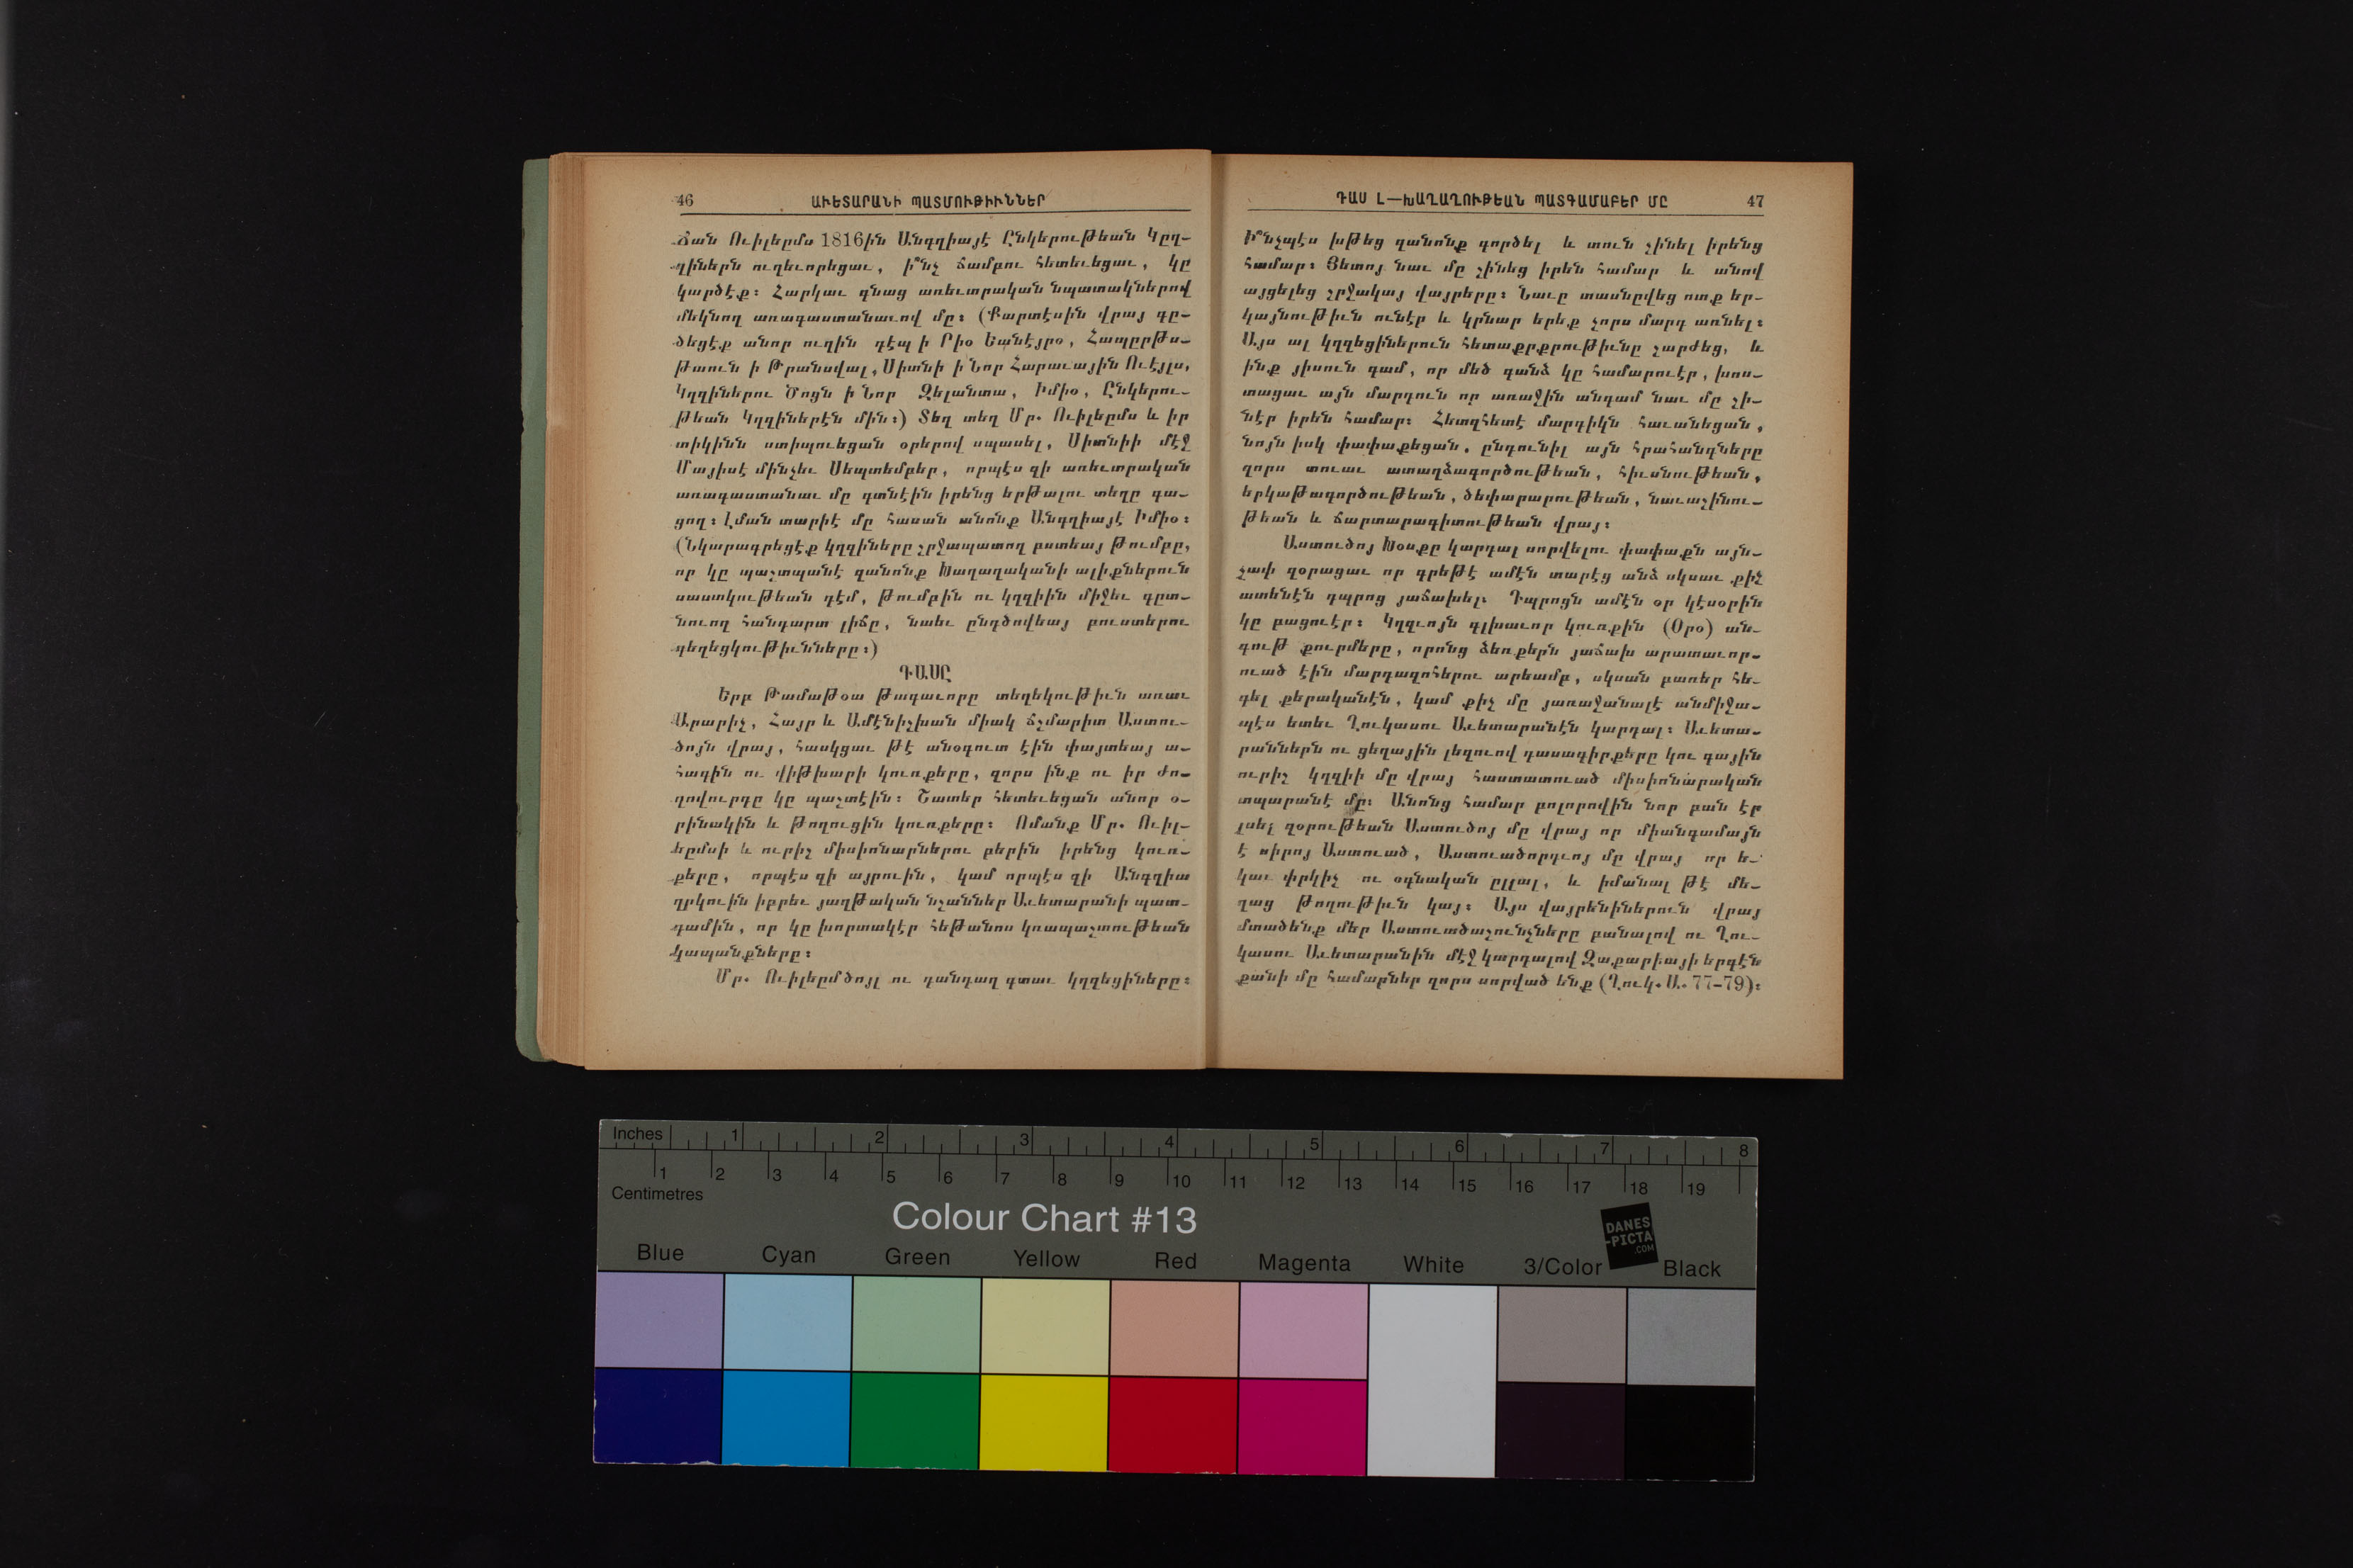 46 ԱՒԵՏԱՐԱՆԻ ՊԱՏՄՈՒԹԻՒՆՆԵՐ
Ճան Ուիլերմս 1816ին Անգղիայէ Ընկերութեան Կըղ-
զիներն ուղեւորեցաւ, ի՞նչ ճամբու հետեւեցաւ, կը
կարծէք։ Հարկաւ գնաց առեւտրական նպատակներով
մեկնող առագաստանաւով մը։ (Քարտէսին վրայ գը-
ծեցէք անոր ուղին դէպ ի Րիօ Եանէյրօ, Հապըրթս-
թաուն ի Թրանսվալ, Սիտնի ի Նոր Հարաւային Ուէյլս,
Կղզիներու Ծոցն ի Նոր Զելանտա, Իմիօ, Ընկերու-
թեան Կղզիներէն մին։) Տեղ տեղ Մր. Ուիլերմս և իր
տիկինն ստիպուեցան օրերով սպասել, Սիտնիի մէջ
Մայիսէ մինչեւ Սեպտեմբեր, որպէս զի առեւտրական
առագաստանաւ մը գտնէին իրենց երթալու տեղը գա-
ցող։ Լման տարիէ մը հասան անոնք Անգղիայէ Իմիօ։
(Նկարագրեցէք կղզիները շրջապատող բստեայ թումբը,
որ կը պաշտպանէ զանոնք Խաղաղականի ալիքներուն
սաստկութեան դէմ, թումբին ու կղզիին միջեւ գըտ-
նուող հանդարտ լիճը, նաեւ ընդծովեայ բուստերու
գեղեցկութիւնները։)
ԴԱՍԸ
Երբ Թամաթօա թագաւորը տեղեկութիւն առաւ
Արարիչ, Հայր և Ամէնիշխան միակ ճշմարիտ Աստու-
ծոյն վրայ, հասկցաւ թէ անօգուտ էին փայտեայ ա-
հագին ու վիթխարի կուռքերը, զորս ինք ու իր ժո-
ղովուրդը կը պաշտէին։ Շատեր հետեւեցան անոր օ-
րինակին և թողուցին կուռքերը։ Ոմանք Մր. Ուիլ-
երմսի և ուրիշ միսիոնարներու բերին իրենց կուռ-
քերը, որպէս զի այրուին, կամ որպէս զի Անգղիա
ղրկուին իբրեւ յաղթական նշաններ Աւետարանի պատ-
գամին, որ կը խորտակէր հեթանոս կռապաշտութեան
կապանքները։
Մր. Ուիլերմ ծոյլ ու դանդաղ գտաւ կղզեցիները։
ԴԱՍ Լ—ԽԱՂԱՂՈՒԹԵԱՆ ՊԱՏԳԱՄԱԲԵՐ ՄԸ 47
Ի՞նչպէս խթեց զանոնք գործել և տուն շինել իրենց
համար։ Յետոյ նաւ մը շինեց իրեն համար և անով
այցելեց շրջակայ վայրերը։ Նաւը տասնըվեց ոտք եր-
կայնութիւն ունէր և կրնար երեք չորս մարդ առնել։
Այս ալ կղզեցիներուն հետաքրքրութիւնը շարժեց, և
ինք յիսուն գամ, որ մեծ գանձ կը համարուէր, խոս-
տացաւ այն մարդուն որ առաջին անգամ նաւ մը շի-
նէր իրեն համար։ Հետզհետէ մարդիկն հաւանեցան,
նոյն իսկ փափաքեցան, ընդունիլ այն հրահանգները
զորս տուաւ ատաղձագործութեան, հիւսնութեան,
երկաթագործութեան, ծեփարարութեան, նաւաշինու-
թեան և ճարտարագիտութեան վրայ։
Աստուծոյ Խօսքը կարդալ սորվելու փափաքն այն-
չափ զօրացաւ որ գրեթէ ամէն տարէց անձ սկսաւ քիչ
ատենէն դպրոց յաճախել։ Դպրոցն ամէն օր կէսօրին
կը բացուէր։ Կղզւոյն գլխաւոր կուռքին (Օրօ) ան-
գութ քուրմերը, որոնց ձեռքերն յաճախ արատաւոր-
ուած էին մարդազոհերու արեամբ, սկսան բառեր հե-
գել քերականէն, կամ քիչ մը յառաջանալէ անմիջա-
պէս ետեւ Ղուկասու Աւետարանէն կարդալ։ Աւետա-
րաններն ու ցեղային լեզուով դասագիրքերը կու գային
ուրիշ կղզիի մը վրայ հաստատուած միսիոնարական
տպարանէ մը։ Անոնց համար բոլորովին նոր բան էր
լսել զօրութեան Աստուծոյ մը վրայ որ միանգամայն
է սիրոյ Աստուած, Աստուածորդւոյ մը վրայ որ ե-
կաւ փրկիչ ու օգնական ըլլալ, և իմանալ թէ մե-
ղաց թողութիւն կայ։ Այս վայրենիներուն վրայ
մտածենք մեր Աստուածաշունչները բանալով ու Ղու-
կասու Աւետարանին մէջ կարդալով Զաքարիայի երգէն
քանի մը համարներ զորս սորված ենք (Ղուկ. Ա. 77-79)։
Inches 1 2 3 4 5 6 7 8
1 2 3 4 5 6 7 8 9 10 11 12 13 14 15 16 17 18 19
Centimetres
Colour Chart #13
DANES
-PICTA
.COM
Blue Cyan Green Yellow Red Magenta White 3/Color Black